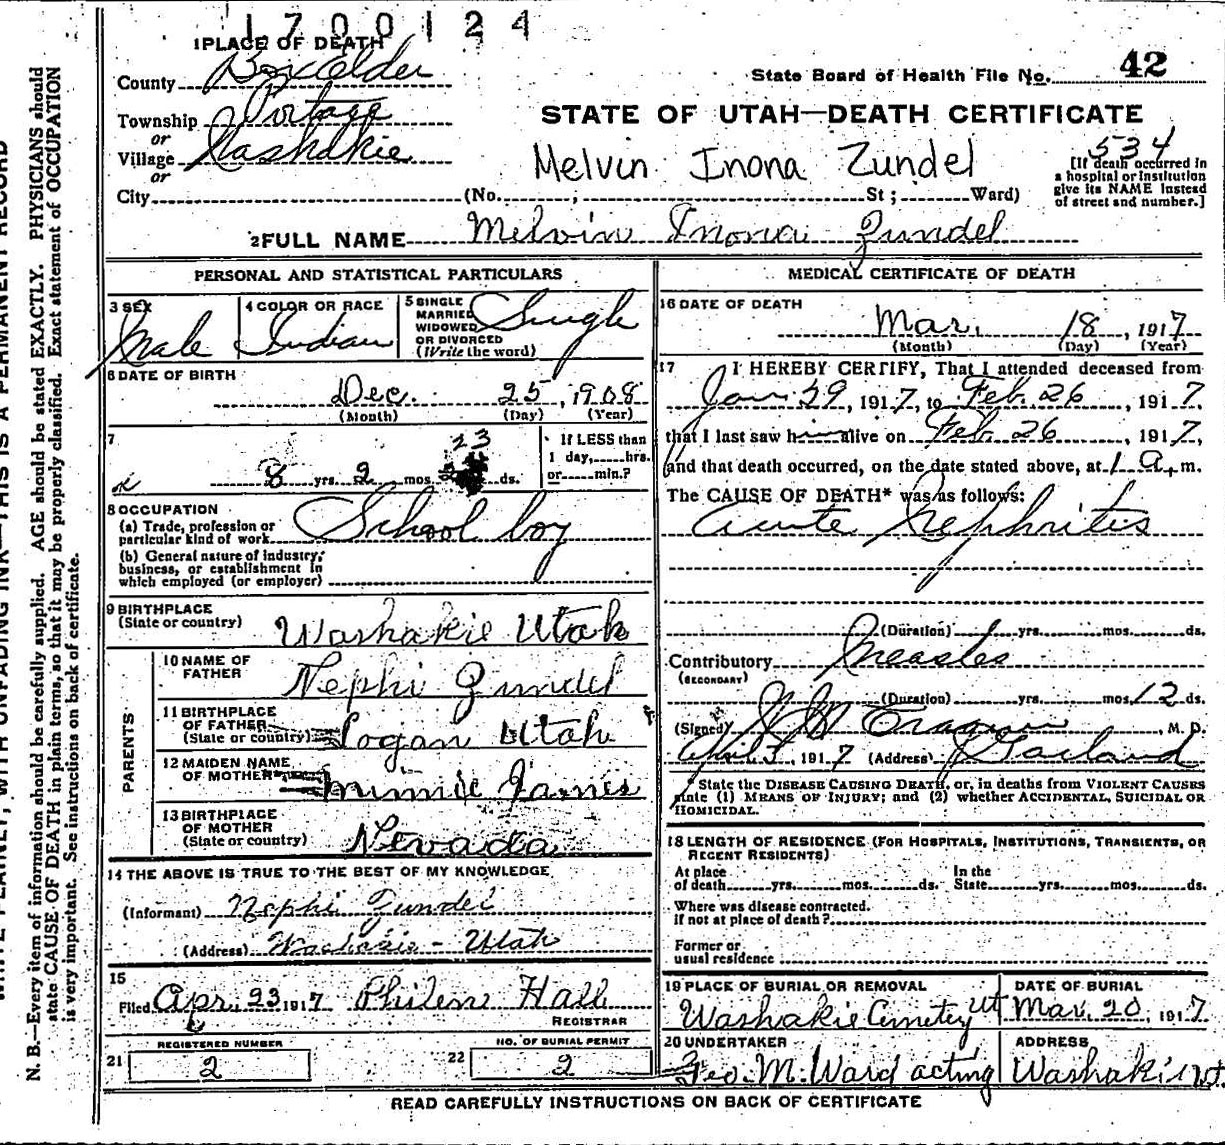 1700124
1 PLACE OF DEATH
County Box Elder
State Board of Health File No. 42
Township Portage
or
Village Washakie
or
City
STATE OF UTAH—DEATH CERTIFICATE
534
Melvin Inona Zundel
[If death occurred in
a hospital or institution
give its NAME instead
of street and number.]
(No. ; St ; Ward)
2 FULL NAME Melvin Inona Zundel
PERSONAL AND STATISTICAL PARTICULARS
3 SEX
Male
4 COLOR OR RACE
Indian
5 SINGLE
MARRIED
WIDOWED
OR DIVORCED
(Write the word)
Single
6 DATE OF BIRTH
Dec. 25, 1908
(Month) (Day) (Year)
7
23
8 yrs. 2 mos. ds.
If LESS than
1 day, hrs.
or min.?
8 OCCUPATION
(a) Trade, profession or
particular kind of work School boy
(b) General nature of industry,
business, or establishment in
which employed (or employer)
9 BIRTHPLACE
(State or country) Washakie Utah
PARENTS
10 NAME OF
FATHER Nephi Zundel
11 BIRTHPLACE
OF FATHER
(State or country) Logan Utah
12 MAIDEN NAME
OF MOTHER Minnie James
13 BIRTHPLACE
OF MOTHER
(State or country) Nevada
14 THE ABOVE IS TRUE TO THE BEST OF MY KNOWLEDGE
(Informant) Nephi Zundel
(Address) Washakie - Utah
15
Filed Apr. 23 1917 Philem Hall
REGISTRAR
21 REGISTERED NUMBER
2
22 NO. OF BURIAL PERMIT
2
MEDICAL CERTIFICATE OF DEATH
16 DATE OF DEATH
Mar. 18, 1917
(Month) (Day) (Year)
17 I HEREBY CERTIFY, That I attended deceased from
Jan 29, 1917, to Feb. 26, 1917,
that I last saw h alive on Feb. 26, 1917,
and that death occurred, on the date stated above, at 1 a. m.
The CAUSE OF DEATH* was as follows:
Acute Nephrites
(Duration) yrs. mos. ds.
Contributory Measles
(SECONDARY)
(Duration) yrs. mos. 12 ds.
(Signed) M. D.
April 5, 1917 (Address) Garland
State the DISEASE CAUSING DEATH, or, in deaths from VIOLENT CAUSES
state (1) MEANS OF INJURY; and (2) whether ACCIDENTAL, SUICIDAL OR
HOMICIDAL.
18 LENGTH OF RESIDENCE (FOR HOSPITALS, INSTITUTIONS, TRANSIENTS, OR
RECENT RESIDENTS)
At place
of death yrs. mos. ds.
In the
State yrs. mos. ds.
Where was disease contracted.
if not at place of death?
Former or
usual residence
19 PLACE OF BURIAL OR REMOVAL
Washakie Cemetey Ut
DATE OF BURIAL
Mar. 20, 1917
20 UNDERTAKER
Geo. M. Ward acting
ADDRESS
Washakie Ut.
READ CAREFULLY INSTRUCTIONS ON BACK OF CERTIFICATE
WRITE PLAINLY, WITH UNFADING INK—THIS IS A PERMANENT RECORD
N. B.—Every item of information should be carefully supplied. AGE should be stated EXACTLY. PHYSICIANS should
state CAUSE OF DEATH in plain terms, so that it may be properly classified. Exact statement of OCCUPATION
is very important. See instructions on back of certificate.